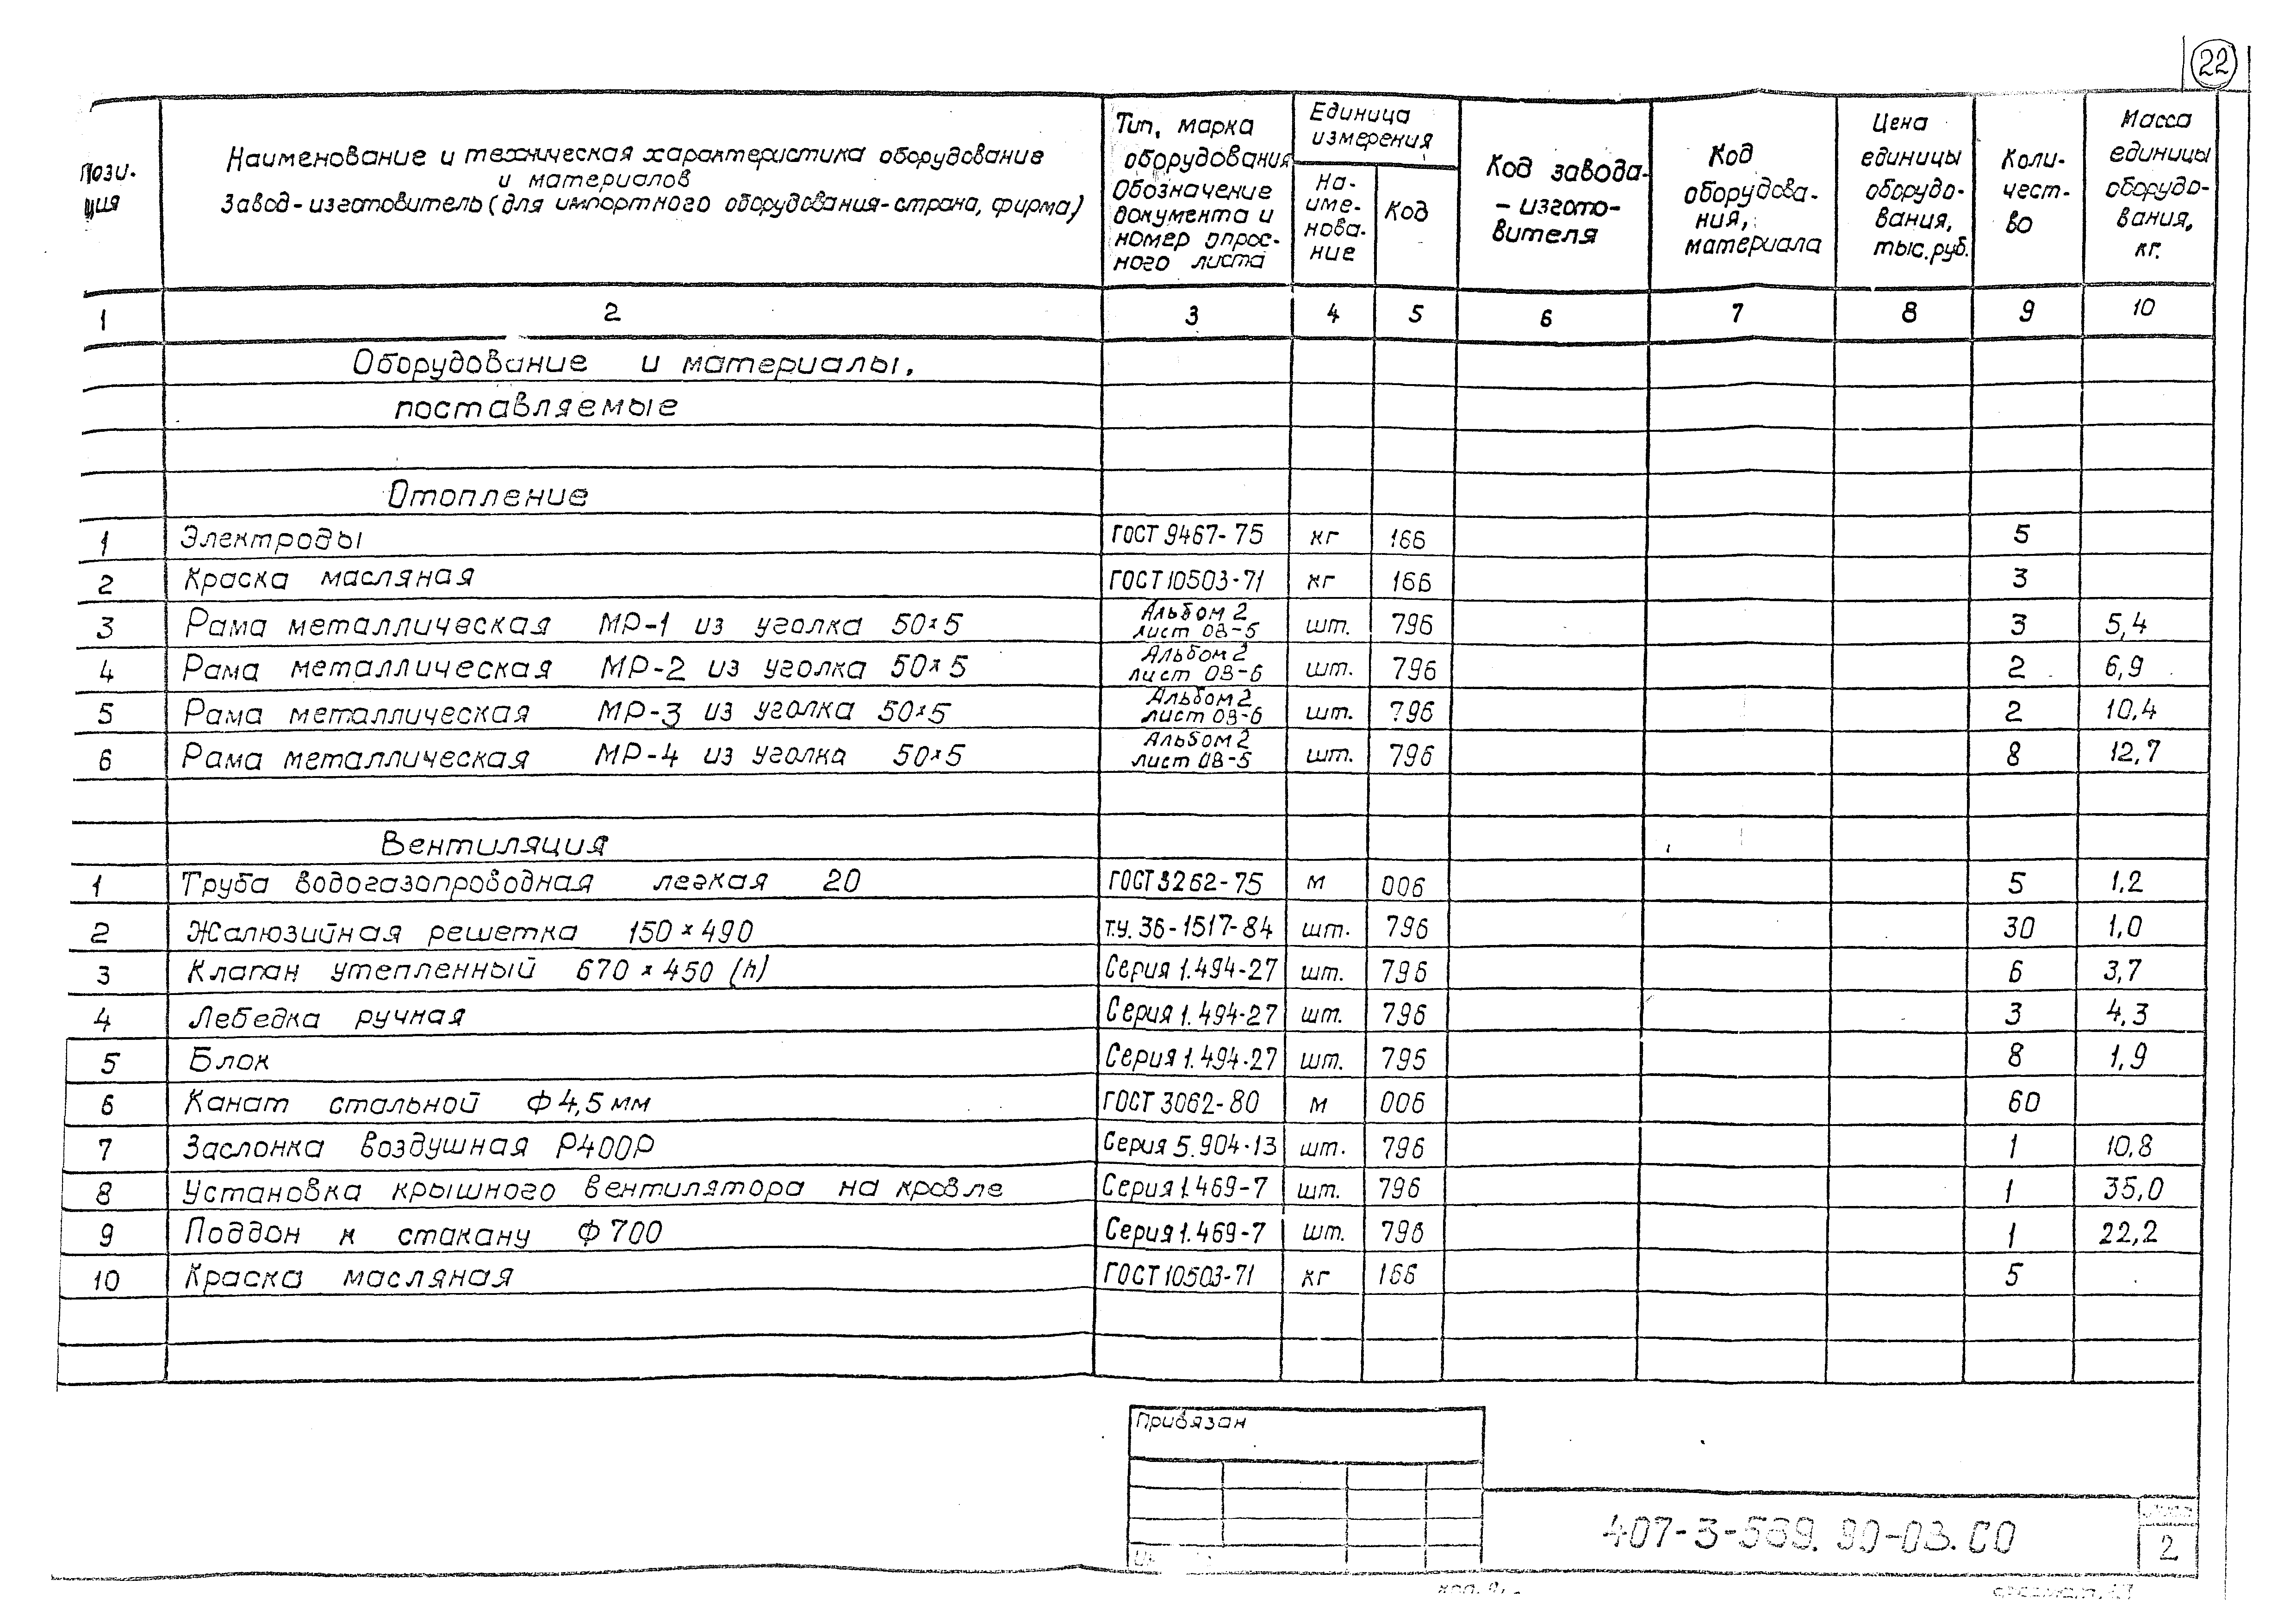 22
Пози-
ция
Наименование и техническая характеристика оборудование
и материалов
Завод-изготовитель (для импортного оборудования-страна, фирма)
Тип, марка
оборудования
Обозначение
документа и
номер опрос-
ного листа
Единица
измерения
На-
име-
нова-
ние
Код
Код завода-
-изгото-
вителя
Код
оборудова-
ния,
материала
Цена
единицы
оборудо-
вания,
тыс.руб.
Коли-
чест-
во
Масса
единицы
оборудо-
вания,
кг.
1 2 3 4 5 6 7 8 9 10
Оборудование и материалы,
поставляемые
Отопление
1 Электроды ГОСТ 9467-75 кг 166 5
2 Краска масляная ГОСТ 10503-71 кг 166 3
3 Рама металлическая МР-1 из уголка 50×5 Альбом 2 лист ОВ-5 шт. 796 3 5,4
4 Рама металлическая МР-2 из уголка 50×5 Альбом 2 лист ОВ-6 шт. 796 2 6,9
5 Рама металлическая МР-3 из уголка 50×5 Альбом 2 лист ОВ-6 шт. 796 2 10,4
6 Рама металлическая МР-4 из уголка 50×5 Альбом 2 лист ОВ-5 шт. 796 8 12,7
Вентиляция
1 Труба водогазопроводная легкая 20 ГОСТ 3262-75 м 006 5 1,2
2 Жалюзийная решетка 150×490 т.у. 36-1517-84 шт. 796 30 1,0
3 Клапан утепленный 670×450 (h) Серия 1.494-27 шт. 796 6 3,7
4 Лебедка ручная Серия 1.494-27 шт. 796 3 4,3
5 Блок Серия 1.494-27 шт. 796 8 1,9
6 Канат стальной ф4,5мм ГОСТ 3062-80 м 006 60
7 Заслонка воздушная Р400Р Серия 5.904-13 шт. 796 1 10,8
8 Установка крышного вентилятора на кровле Серия 1.469-7 шт. 796 1 35,0
9 Поддон к стакану ф700 Серия 1.469-7 шт. 796 1 22,2
10 Краска масляная ГОСТ 10503-71 кг 166 5
Привязан
407-3-569.90-ОВ.СО
Лист
2